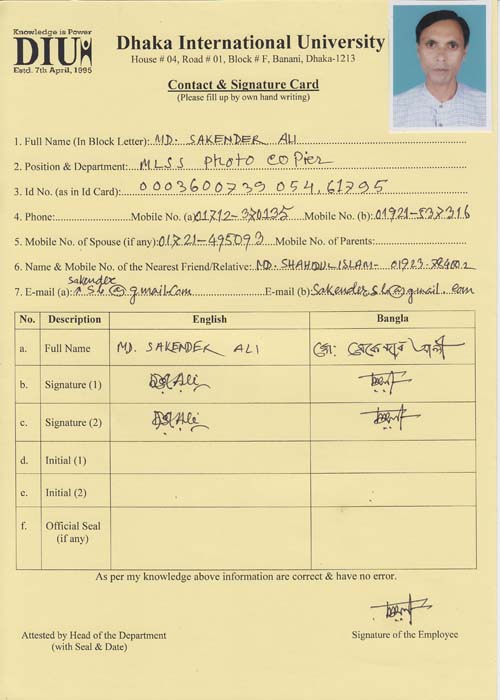 Knowledge is Power
DIU
Estd. 7th April, 1995
Dhaka International University
House # 04, Road # 01, Block # F, Banani, Dhaka-1213
Contact & Signature Card
(Please fill up by own hand writing)
1. Full Name (In Block Letter): MD. SAKENDER ALI
2. Position & Department: MLSS Photo Copier
3. Id No. (as in Id Card): 0003600739 054,61795
4. Phone: Mobile No. (a) 01712-370135 Mobile No. (b): 01921-537316
5. Mobile No. of Spouse (if any): 01721-495093 Mobile No. of Parents:
6. Name & Mobile No. of the Nearest Friend/Relative: MD. SHAHDULISLAM- 01923-784002
sakender
7. E-mail (a): Sb@gmail.com E-mail (b) Sakender.sb@gmail.com
No. Description English Bangla
a. Full Name MD. SAKENDER ALI মো: সেকেন্দার আলী
b. Signature (1) Ali
c. Signature (2) Ali
d. Initial (1)
e. Initial (2)
f. Official Seal
(if any)
As per my knowledge above information are correct & have no error.
Attested by Head of the Department Signature of the Employee
(with Seal & Date)